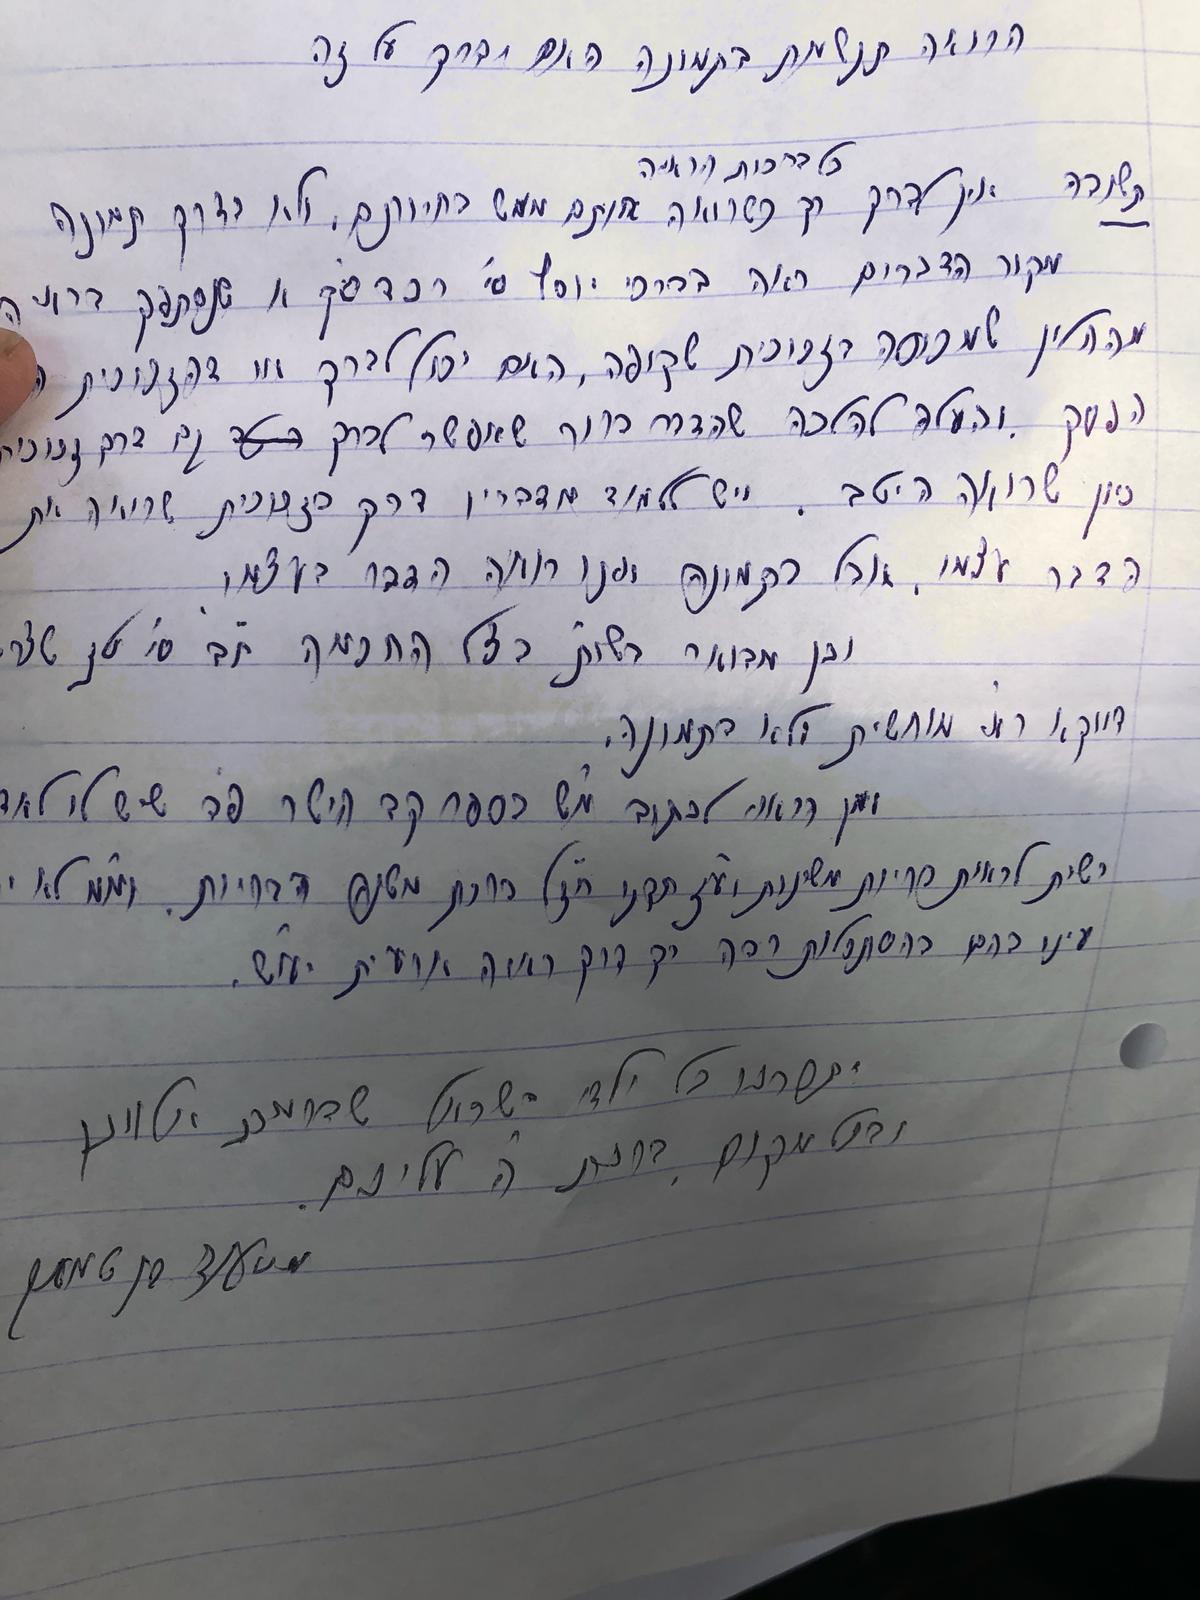 הרואה תנשמת בתמונה האם יברך על זה
כל ברכות הראייה
תשובה אין לברך רק כשרואה אותם ממש בחיותם, ולא בדרך תמונה
מקור הדברים ראה בברכי יוסף סי' רכד סק א שנסתפק בראי
שמכוסה בזכוכית שקופה, האם יכול לברך או דהזכוכית
הפסק. והעלה להלכה שהדבר ברור שאפשר לברך גם דרך זכוכית
כיון שרואה היטב. ויש ללמוד מדבריו דרק בזכוכית שרואה את
הדבר עצמו, אבל בתמונה אינו רואה הדבר בעצמו
וכן מבואר בשו"ת בצל החכמה ח"ב סי'
דווקא ראי' מוחשית ולא בתמונה.
ומן הראוי לכתוב מ"ש בספר קב הישר פ"ב שיש לו לאד
לראות בריות משונות וע"ז תקנו חז"ל ברכת משנה הבריות. ומ"מ לא י
עינו בהם בהסתכלות רבה רק דרך ראיה ארעית יעו"ש.
יתברכו כל ילדי ישראל
ובכל מקום. ברכת ה' עליכם.